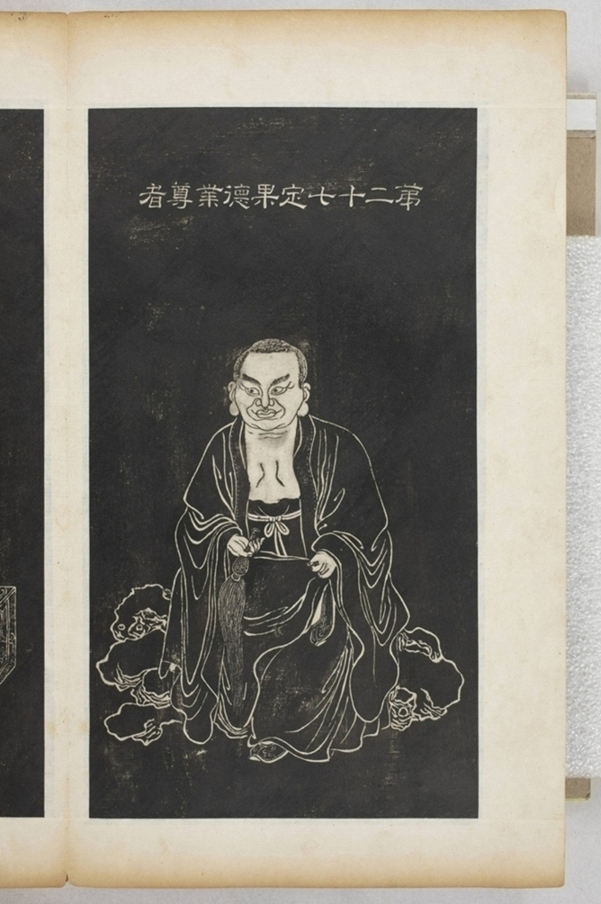 第二十七定果德業尊者